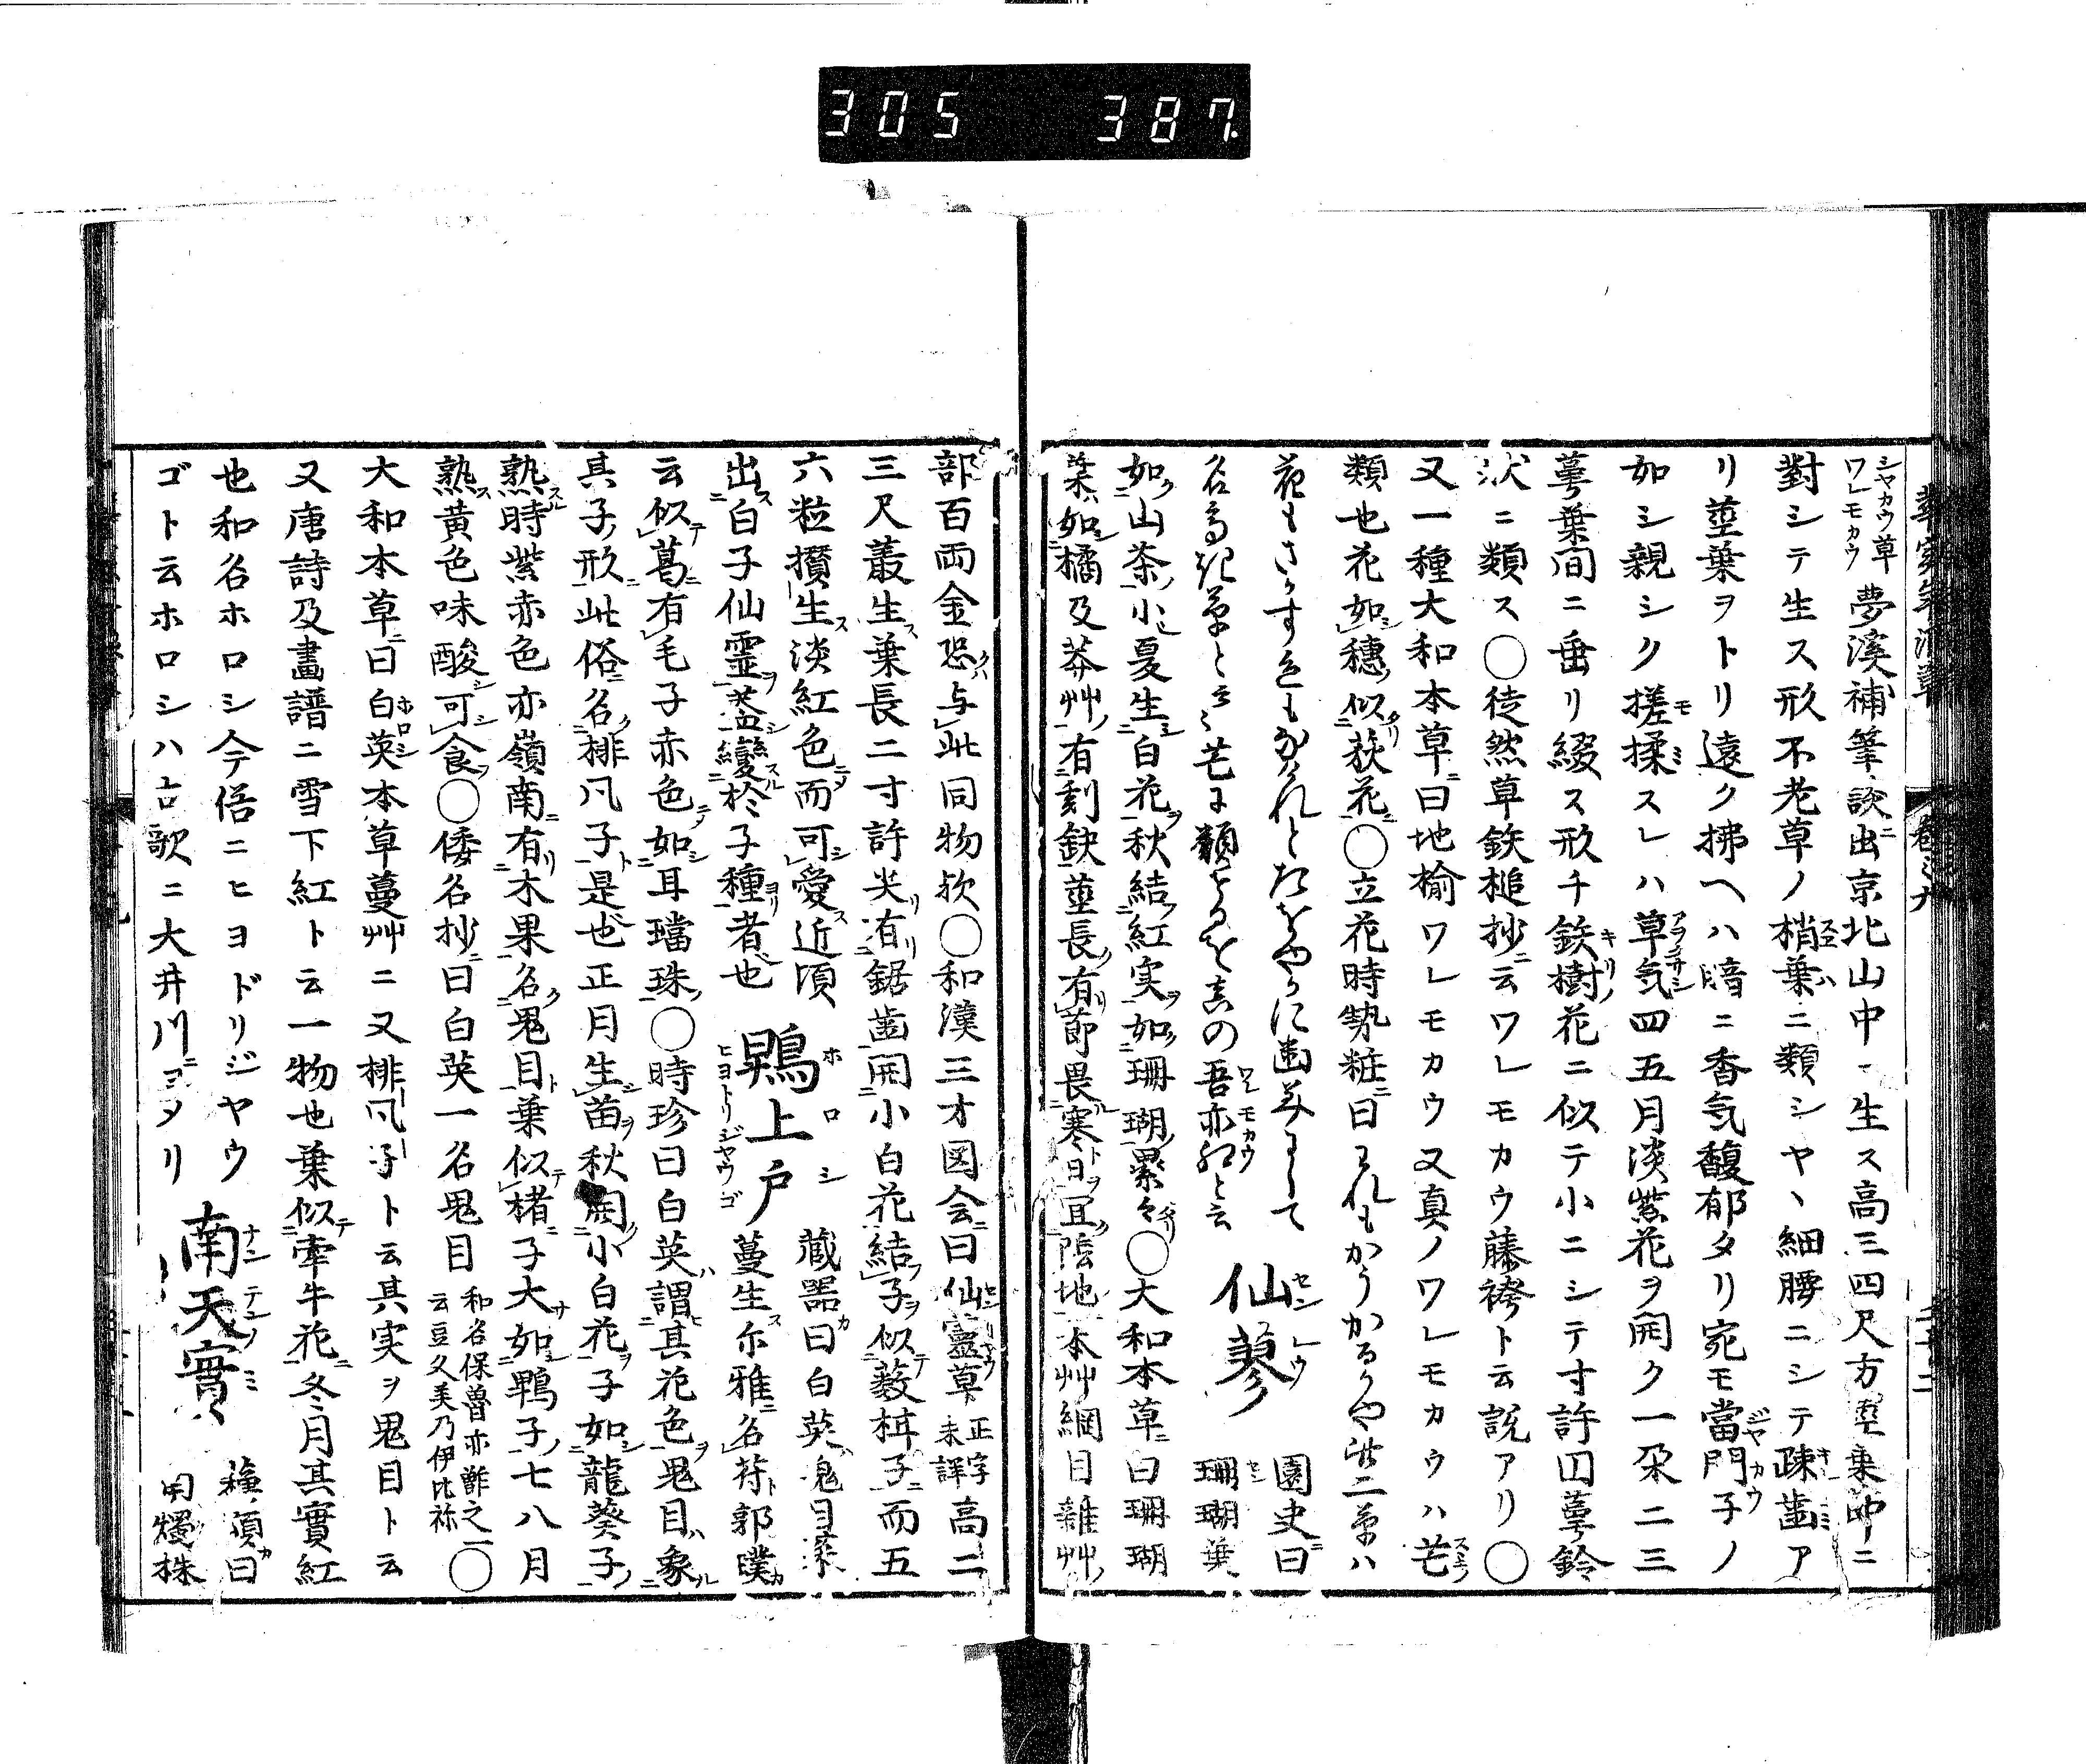 305 387.
シヤカウ草
ワレモカウ
夢溪補筆談ニ出京北山中ニ生ス高三四尺方莖葉節ニ
對シテ生ス形不老草ノ梢葉ニ類シヤヽ細腰ニシテ疎歯ア
リ莖葉ヲトリ遠ク拂ヘハ暗ニ香気馥郁タリ宛モ當門子ノ
如シ親シク搓揉スレハ草気四五月淡紫花ヲ開ク一朶二三
萼葉間ニ垂リ綴ス形チ鉄樹花ニ似テ小ニシテ寸許囚萼鈴
状ニ類ス〇徒然草鉄槌抄ニ云ワレモカウ藤袴ト云説アリ〇
又一種大和本草ニ曰地榆ワレモカウ又真ノワレモカウハ芒ノ
類也花如穗似荻花〇立花時勢粧ニ曰われもかうかるかや此二草ハ
花もさかす色もなけれと
名高き草と云芒に類するを真の吾亦紅と云
仙蓼
センレウ
園史曰
珊瑚葉
如山茶小夏生白花秋結紅実如珊瑚累々〇大和本草ニ曰珊瑚
葉如橘及莽艸有刻鈌莖長有節畏寒日宜陰地本艸綱目雜艸
部百両金恐与此同物欤〇和漢三才図会ニ曰仙靈草正字未詳高二
三尺叢生葉長二寸許尖有鋸歯開小白花結子似薮柑子而五
六粒攅生淡紅色而可愛近頃
出白子仙靈葢變於子種者也
鵯上戸
ホロシ
ヒヨトリジヤウゴ
蔵器曰白英鬼目菜
蔓生尓雅名苻郭璞
云似葛有毛子赤色如耳璫珠〇時珍曰白英謂其花色鬼目象
其子形此俗名排凡子是也正月生苗秋開小白花子如龍葵子
熟時紫赤色亦嶺南有木果名鬼目葉似楮子大如鴨子七八月
熟黄色味酸可食〇倭名抄ニ曰白英一名鬼目和名保曽亦酢之一云豆久美乃伊比祢〇
大和本草ニ曰白英本草蔓艸ニ又排凡子ト云其実ヲ鬼目ト云
又唐詩及畫譜ニ雪下紅ト云一物也葉似牽牛花冬月其實紅
也和名ホロシ今俗ニヒヨドリジヤウ
ゴト云ホロシハ古歌ニ大井川ニヨメリ
南天實
ナンテンノミ
蘓頌曰